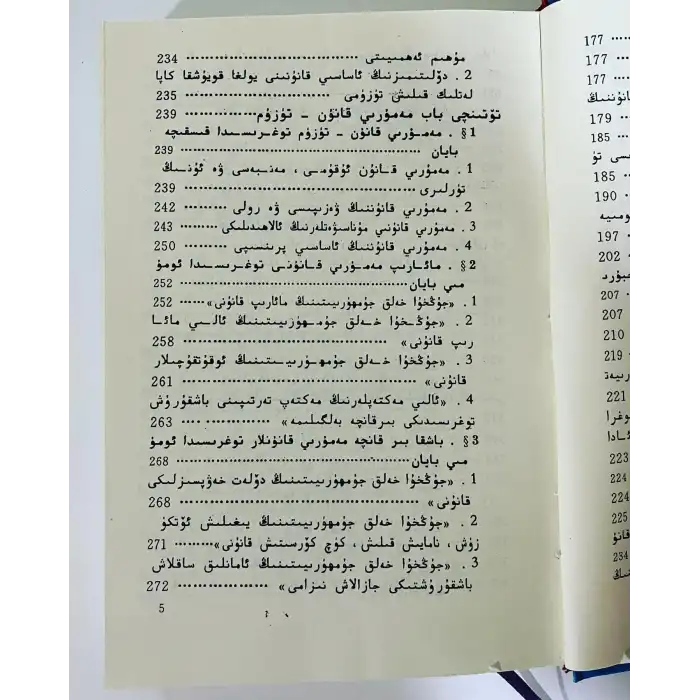 مۇھىم ئەھمىيىتى ······ 234
2 . دۆلىتىمىزنىڭ ئاساسىي قانۇنىنى يولغا قويۇشقا كاپا
لەتلىك قىلىش تۈزۈمى ······ 235
تۆتىنچى باب مەمۇرىي قانۇن - تۈزۈم ······ 239
§1 . مەمۇرىي قانۇن - تۈزۈم توغرىسىدا قىسقىچە
بايان ······ 239
1 . مەمۇرىي قانۇن ئۇقۇمى، مەنبەسى ۋە ئۇنىڭ
تۈرلىرى ······ 239
2 . مەمۇرىي قانۇننىڭ ۋەزىپىسى ۋە رولى ······ 242
3 . مەمۇرىي قانۇنىي مۇناسىۋەتلەرنىڭ ئالاھىدىلىكى ······ 243
4 . مەمۇرىي قانۇننىڭ ئاساسىي پرىنسىپى ······ 250
§2 . مائارىپ مەمۇرىي قانۇنى توغرىسىدا ئومۇ
مىي بايان ······ 252
1 . «جۇڭخۇا خەلق جۇمھۇرىيىتىنىڭ مائارىپ قانۇنى» ······ 252
2 . «جۇڭخۇا خەلق جۇمھۇرىيىتىنىڭ ئالىي مائا
رىپ قانۇنى» ······ 258
3 . «جۇڭخۇا خەلق جۇمھۇرىيىتىنىڭ ئوقۇتقۇچىلار
قانۇنى» ······ 261
4 . «ئالىي مەكتەپلەرنىڭ مەكتەپ تەرتىپىنى باشقۇرۇش
توغرىسىدىكى بىرقانچە بەلگىلىمە» ······ 263
§3 . باشقا بىر قانچە مەمۇرىي قانۇنلار توغرىسىدا ئومۇ
مىي بايان ······ 268
1 . «جۇڭخۇا خەلق جۇمھۇرىيىتىنىڭ دۆلەت خەۋپسىزلىكى
قانۇنى» ······ 268
2 . «جۇڭخۇا خەلق جۇمھۇرىيىتىنىڭ يىغىلىش ئۆتكۈ
زۈش، نامايىش قىلىش، كۈچ كۆرسىتىش قانۇنى» ······ 271
3 . «جۇڭخۇا خەلق جۇمھۇرىيىتىنىڭ ئامانلىق ساقلاش
باشقۇرۇشتىكى جازالاش نىزامى» ······ 272
5
177
177
177
179
185
185
190
197
202
207
207
210
219
221
223
224
224
225
234